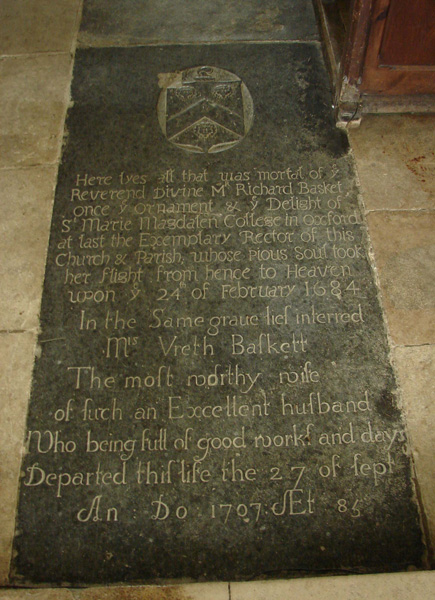 Here lyes all that was mortal of yͤ
Reverend Divine Mͬ Richard Basket,
once yͤ Ornament & yͤ Delight of
Sͭ Marie Magdalen College in Oxford
at last the Exemplary Rector of this
Church & Parish, whose Pious Soul took
her flight from hence to Heaven
upon yͤ 24ͭͪ of February 1684
In the Same graue lieſ interred
Mͬˢ Vreth Baſkett
The moſt worthy wife
of ſuch an Excellent huſband
Who being full of good workſ and dayſ
Departed thiſ life the 27 of ſept
An: Do 1707: Æt 85